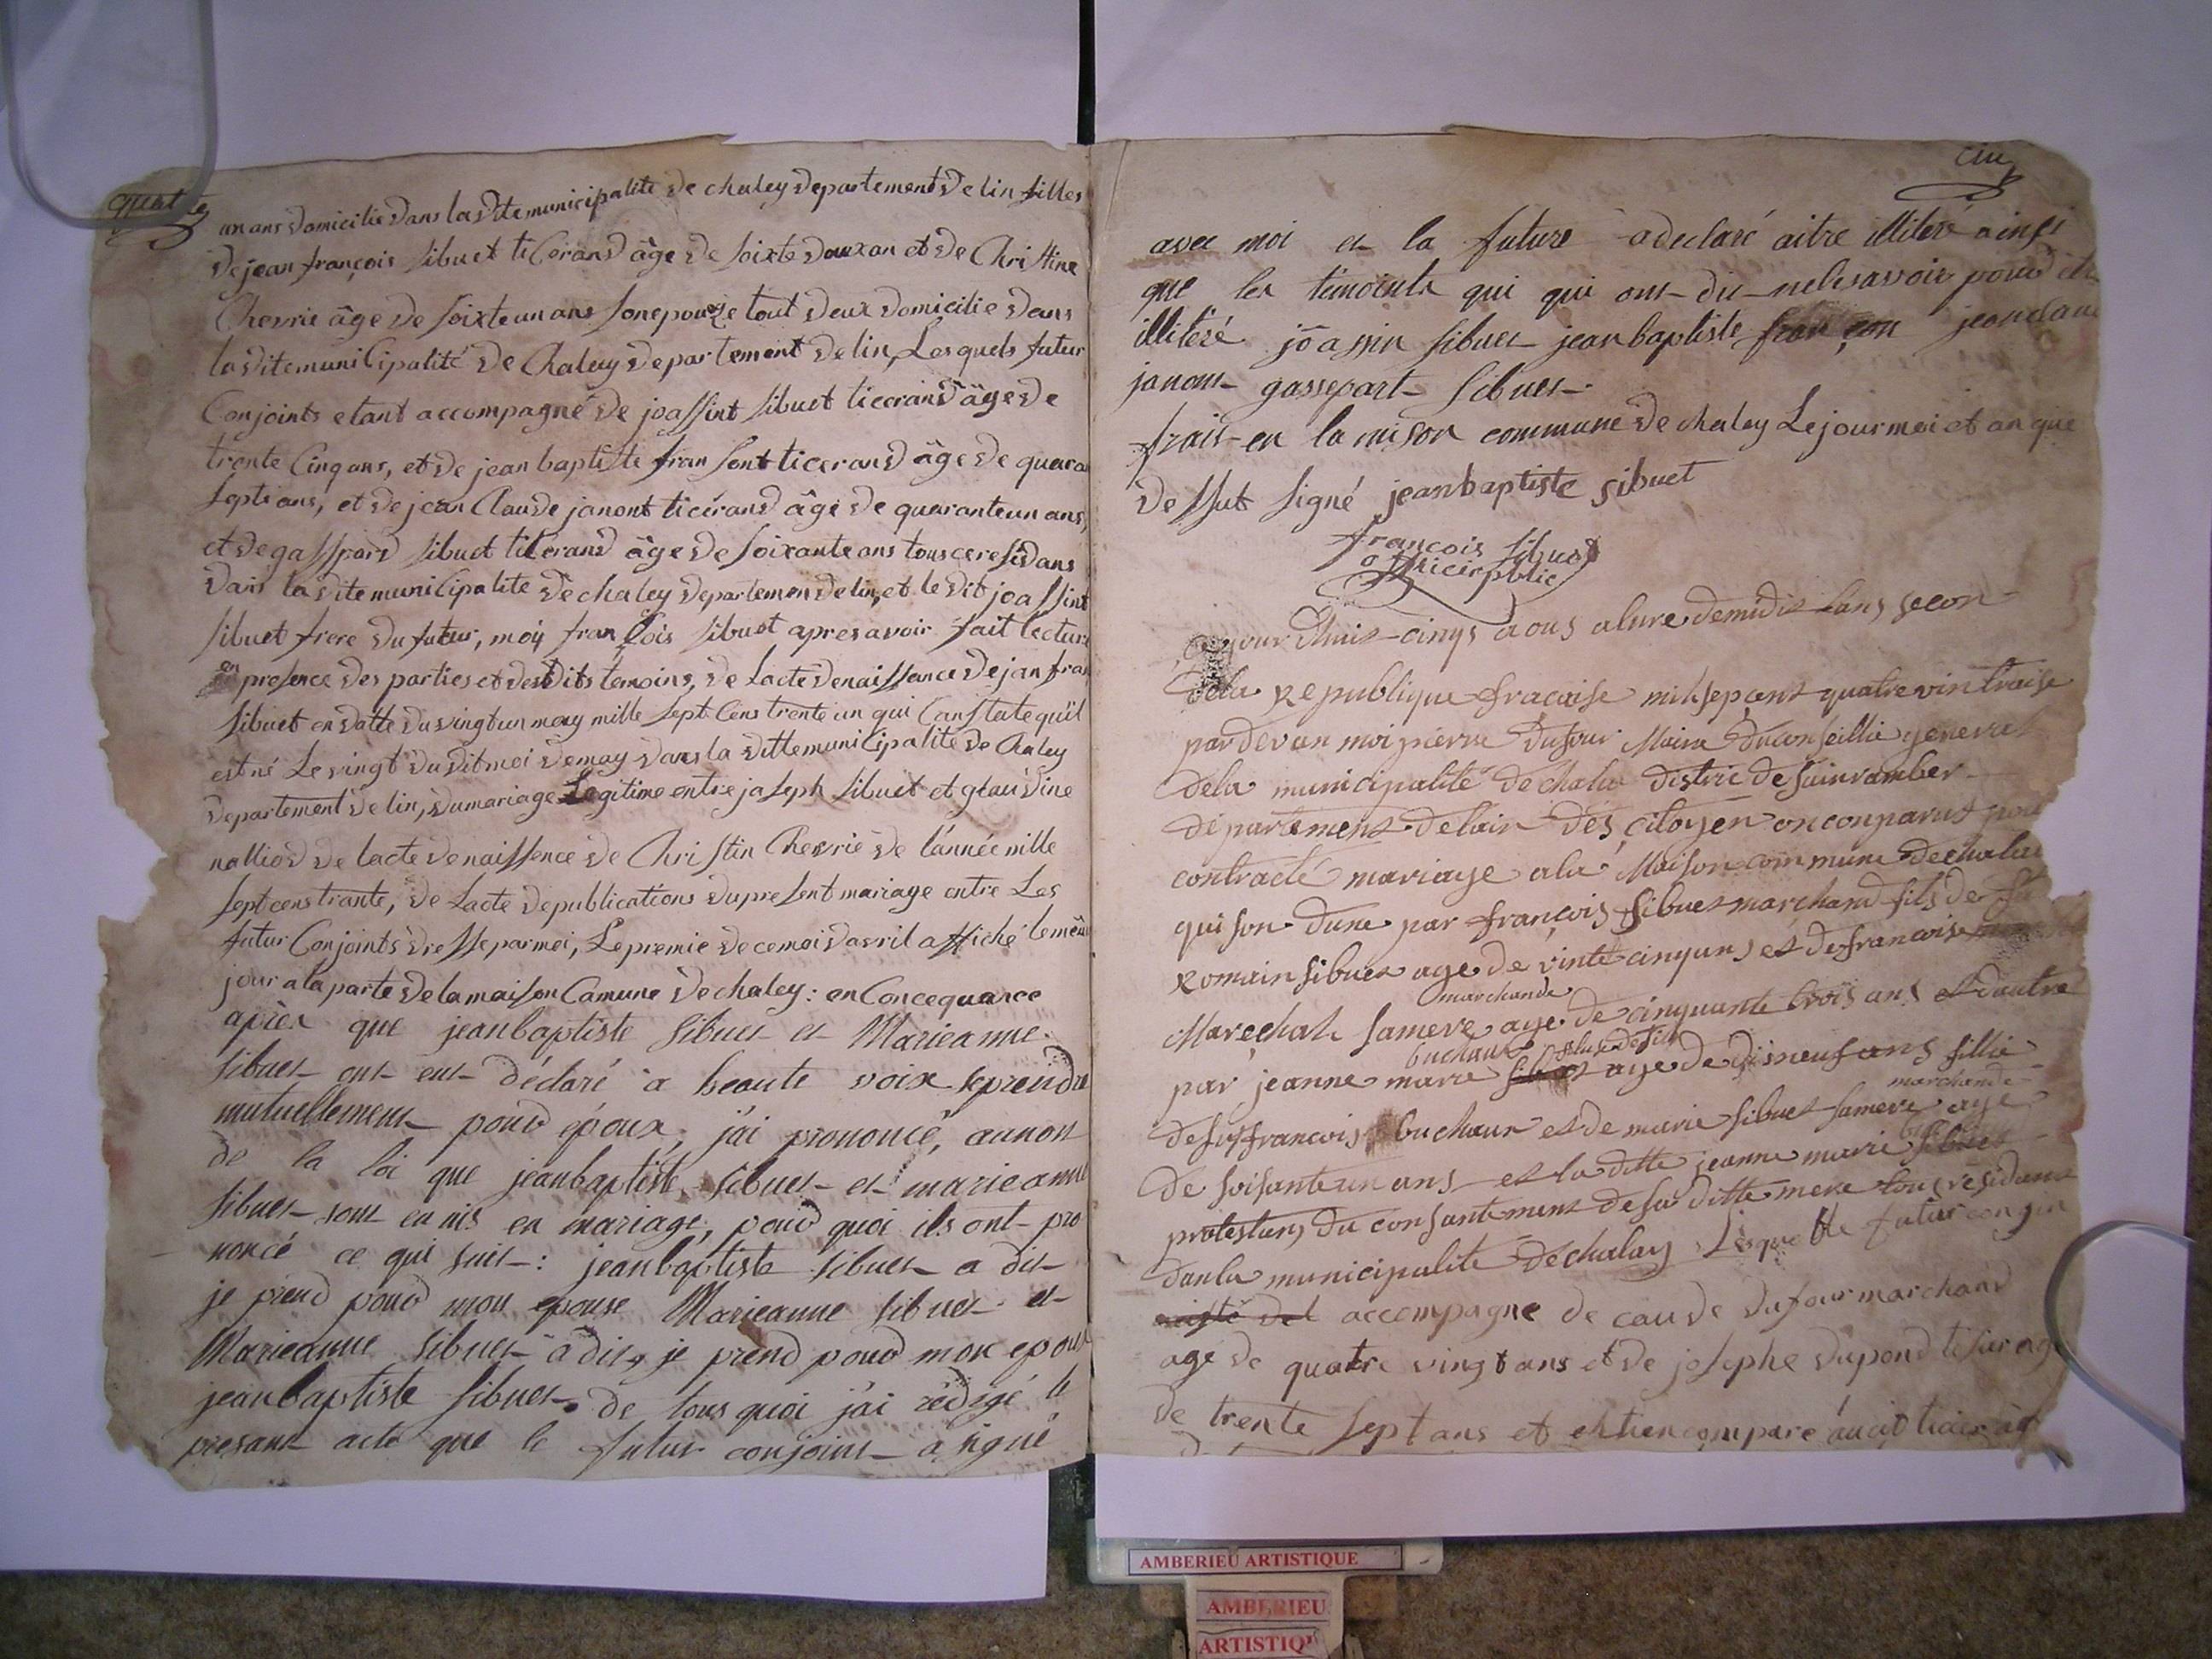 quatre
un ans domicilie dans la dite municipalite de chaley departement de lin filles
de jean françois sibuet ticerand âge de soixte douxan et de Christine
Chevrie âge de soixte un ans son epouze tout deux domicilie dans
la dite municipalité de Chaley departement de lin, Les quels futur
Conjoints etant accompagné de joassint sibuet ticerand âge de
trente Cinq ans, et de jean baptiste fran sont ticerand âge de quara
septians, et de jean Claude janont ticerand âge de quarante un ans,
et de gasspard sibuet ticerand âge de soixante ans tous ceresidans
dans la dite municipalite de chaley departemen de lin, et le dit joassint
sibuet frere du futur, moy francois sibuet apres avoir fait lecture
en presence des parties et des dits temoins, de Lacte de naissance de jan fran
sibuet en datte du vingt un may mille sept Cens trente un qui Canstate quil
est né Le vingt du dit moi de may dans la ditte municipalite de Chaley
departement de lin, du mariage Legitime entre joseph sibuet et glaudine
nalliod de lacte de naissence de Christin Chevrie de lannée mille
sept cens trante, de Lacte de publications du present mariage entre Les
futur Conjoints dresse par moi, Le premie de ce mois d'avril affiché le mêm
jour a la parte de la maison Camune de chaley: en Concequance
après que jean baptiste sibuet et Marieanne
sibuet ont eut déclaré a heaute voix se prendre
mutuellement pour époux, j'ai prononcé, aunon
de la loi que jeanbaptiste sibuet et marieanne
sibuet sont eu nis en mariage, pour quoi ils ont pro
noncé ce qui suit: jeanbaptiste sibuet a dit
je prend pour mon epouse Marieanne sibuet et
Marieanne sibuet à dit, je prend pour mon epoux
jeanbaptiste sibuet. de tous quoi j'ai rédigé le
presant acte que le futur conjoint a signé
cinq
avec moi et la future a declaré aitre illiteré ainsi
que les timoints qui qui ont dit ne le savoir pour
illiteré joassin sibuet jean baptiste françon jean claud
janont gassepart sibuet
frait en la mison commune de chaley Le jour moi et an que
dessut signé jeanbaptiste sibuet
francois sibuet
officier public
jour dhuit cinqs aous alure demidit lans secon
dela republique fracaise milsepcent quatre vin traise
par devan moi pierre dufour Maire du conseillie general
dela municipalité de chalai distric de sainramber
département delain des citoyen onconparut pour
contracté mariage ala Maison commune de chalai
qui son dune par françois sibuet marchand fils de fu
romain sibuet age de vinte cinqans et de francoise
marchande
Marechal samere age de cinquante trois ans et dautre
buchaur
par jeanne marie sibuet age de disneuf ans fillie
marchande
de fu francois buchaur et de marie sibuet samere age
de soisante un ans et la ditte jeanne marie sibuet
protestans du consantement de sa ditte mere tous residant
danla municipalite de chalay Lesquelle futur conjoin
accompagne de caude dufour marchand
age de quatre vingt ans et de josephe dupond tisur age
de trente sept ans et ehtien compare
AMBERIEU ARTISTIQUE
AMBERIEU
ARTISTIQU